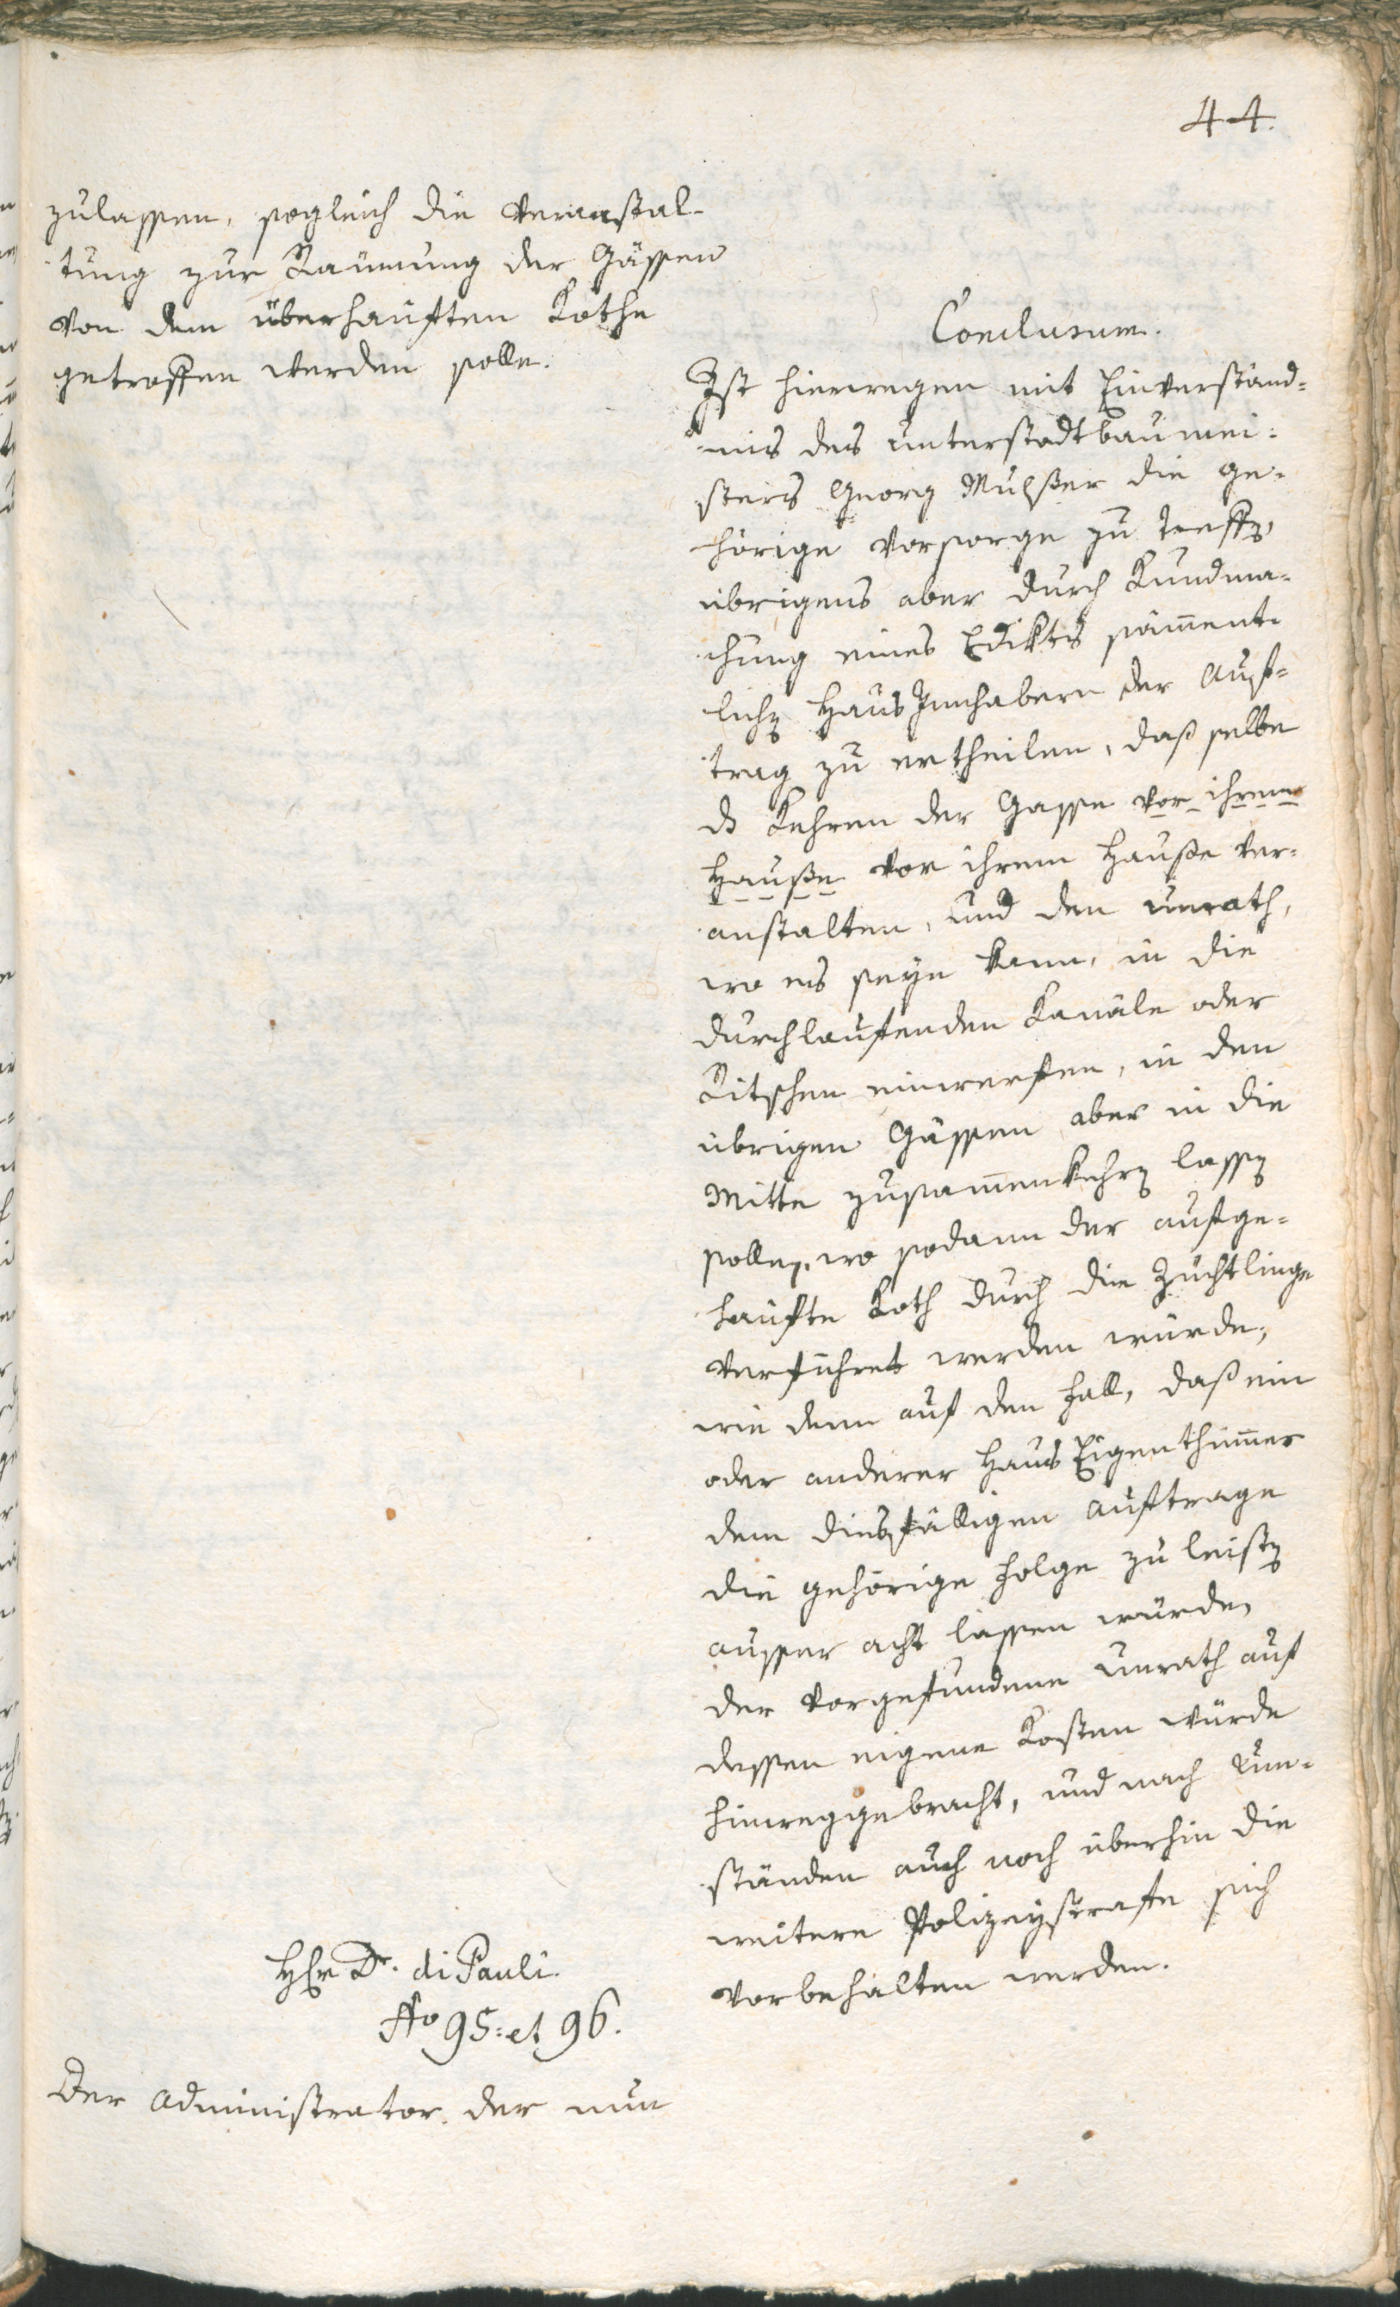 44.
zulassen, sogleich die Veranstal-
tung zur Räumung der Gässen
von dem überhauften Kothe
getroffen werden solle.
Conclusum.
Ist hierwegen mit Einverständ=
nis des unterstadtbaumei=
sters Georg Mulßer die ge=
hörige Vorsorge zu treffen,
übrigens aber durch Kundma=
chung eines Edikts sam̄ent=
lichen Haus Innhabern der Auf=
trag zu ertheilen, daß selbe
ds Kehren der Gasse vor ihrem
Hauße vor ihrem Hauße ver=
anstalten, und den unrath,
wo es seyn kann, in die
durchlaufenden Kanäle oder
Ritschen einwerfen, in den
übrigen Gässen aber in die
Mitte zusam̄enkehren lassen
sollen, wo sodann der aufge=
haufte Koth durch die Züchtlinge
verführet werden würde,
wie denn auf den Fall, daß ein
oder anderer Haus Eigenthüm̄er
dem diesfälligen Auftrage
die gehörige Folge zu leisten
ausser acht lassen würde,
der vorgefundene Unrath auf
dessen eigene Kosten würde
hinweggebracht, und nach Um=
ständen auch noch überhin die
weitere Polizeystrafe sich
vorbehalten werden.
Hr Dr. di Pauli
No 95: et 96.
Der Administrator der nun